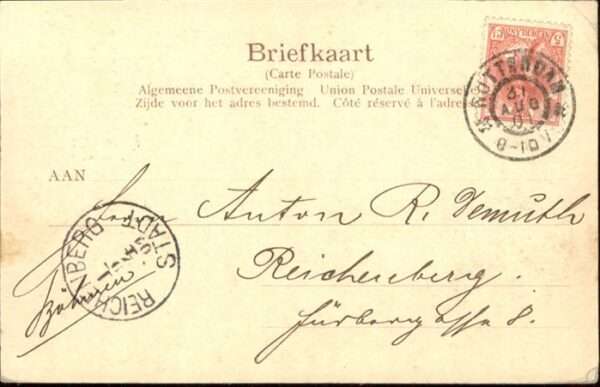 Briefkaart
(Carte Postale)
Algemeene Postvereeniging Union Postale Universe
Zijde voor het adres bestemd. Côté réservé à l'adre
ROTTERDAM
31
AUG
8-10V
AAN
Herrn Anton R. Demuth
Reichenberg.
Färbergasse 8.
Böhmen
REICHENBERG
STADT